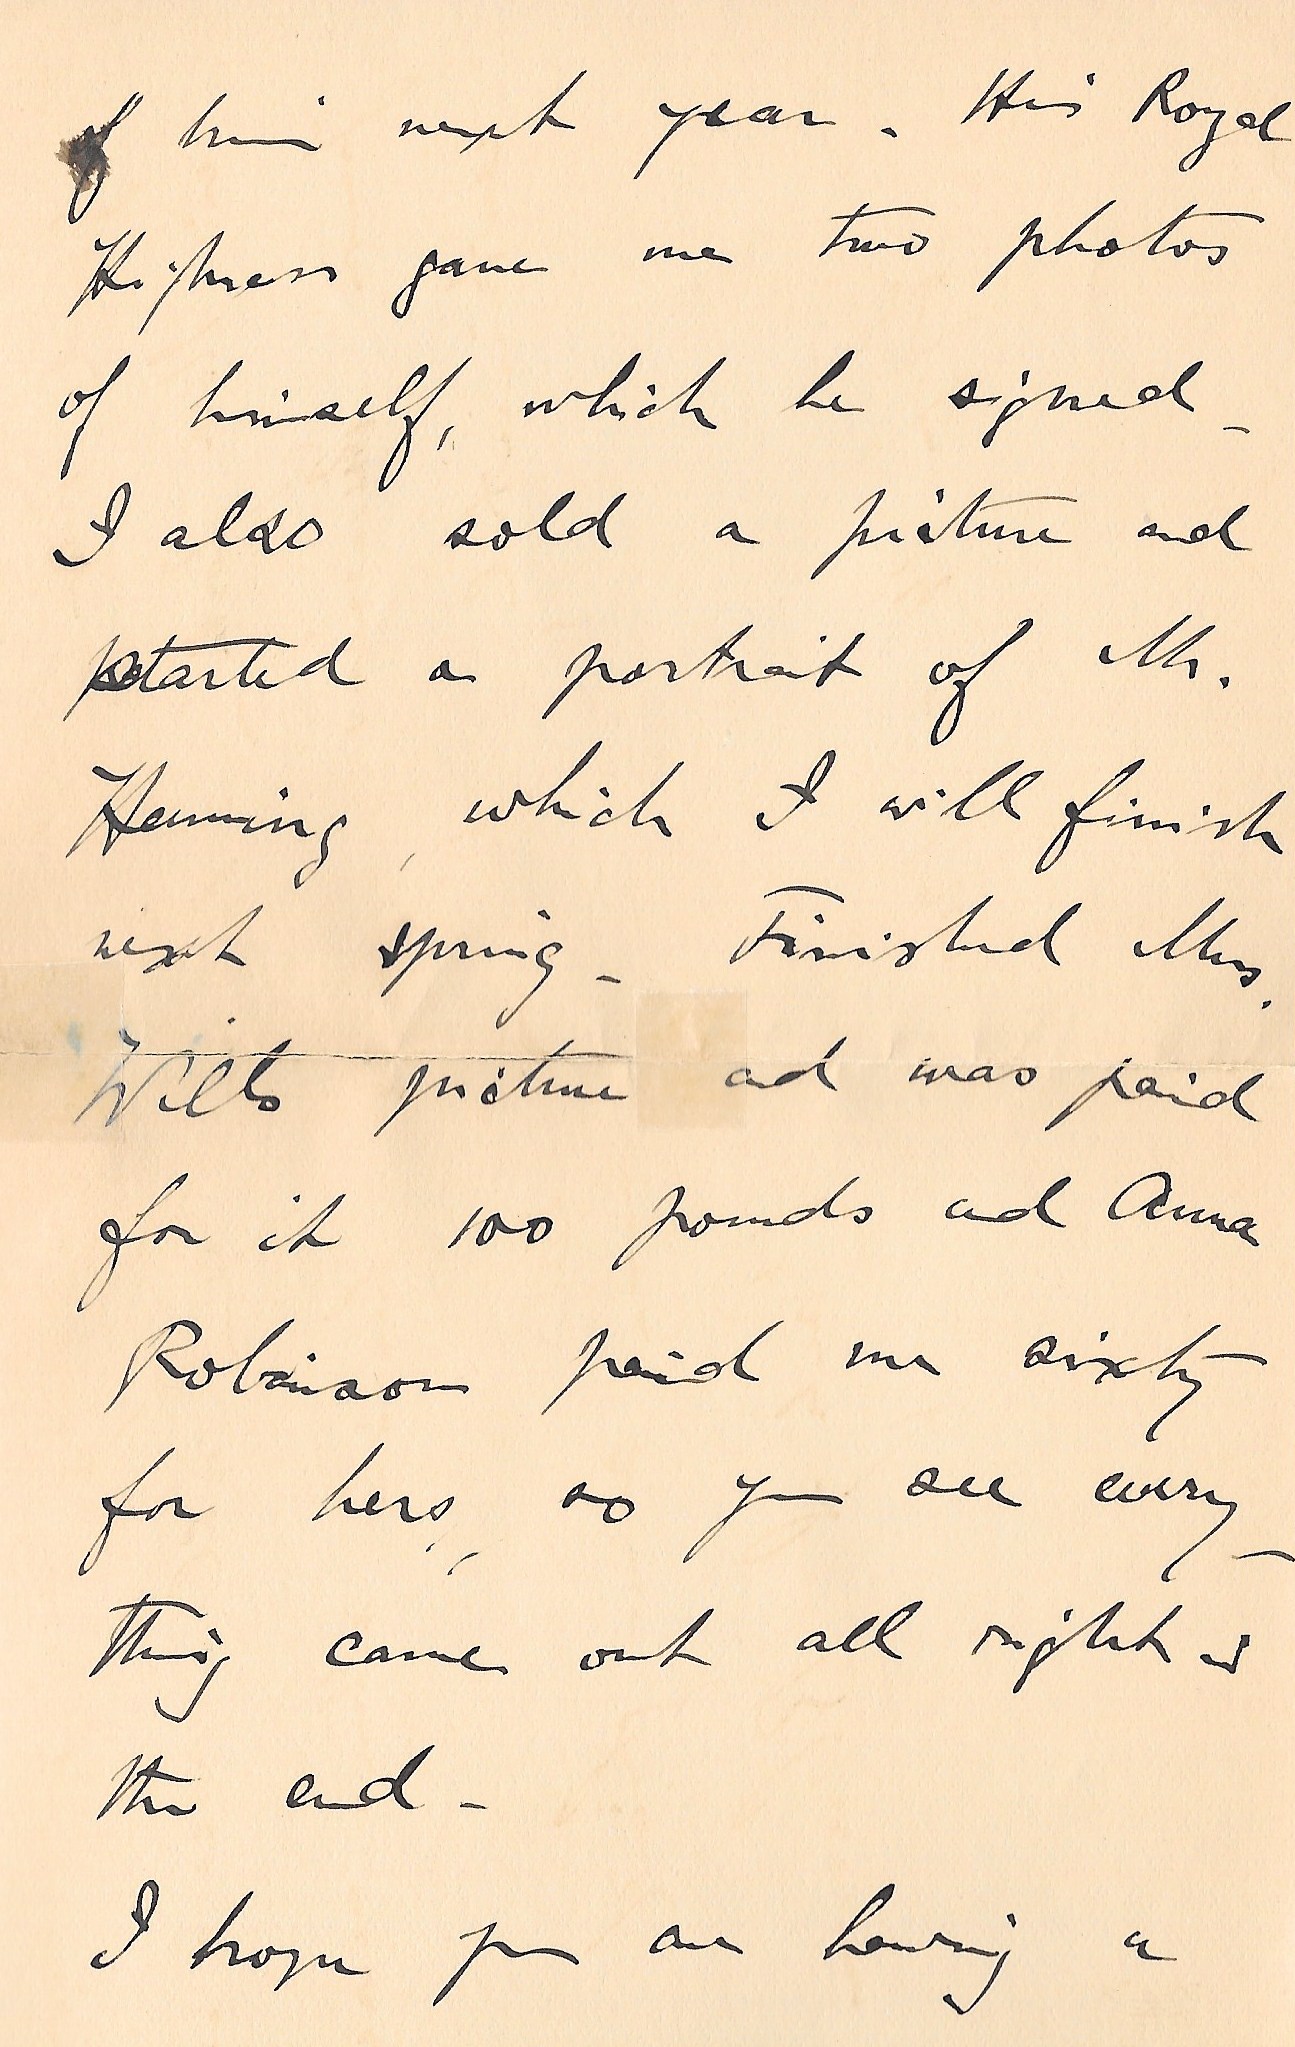 of him next year. His Royal
Highness gave me two photos
of himself, which he signed -
I also sold a picture and
started a portrait of Mr.
Henning, which I will finish
next spring - Finished Mrs.
Wills picture and was paid
for it 100 pounds and Anna
Robinson paid me sixty
for hers, so you see every-
thing came out all right in
the end -
I hope you are having a